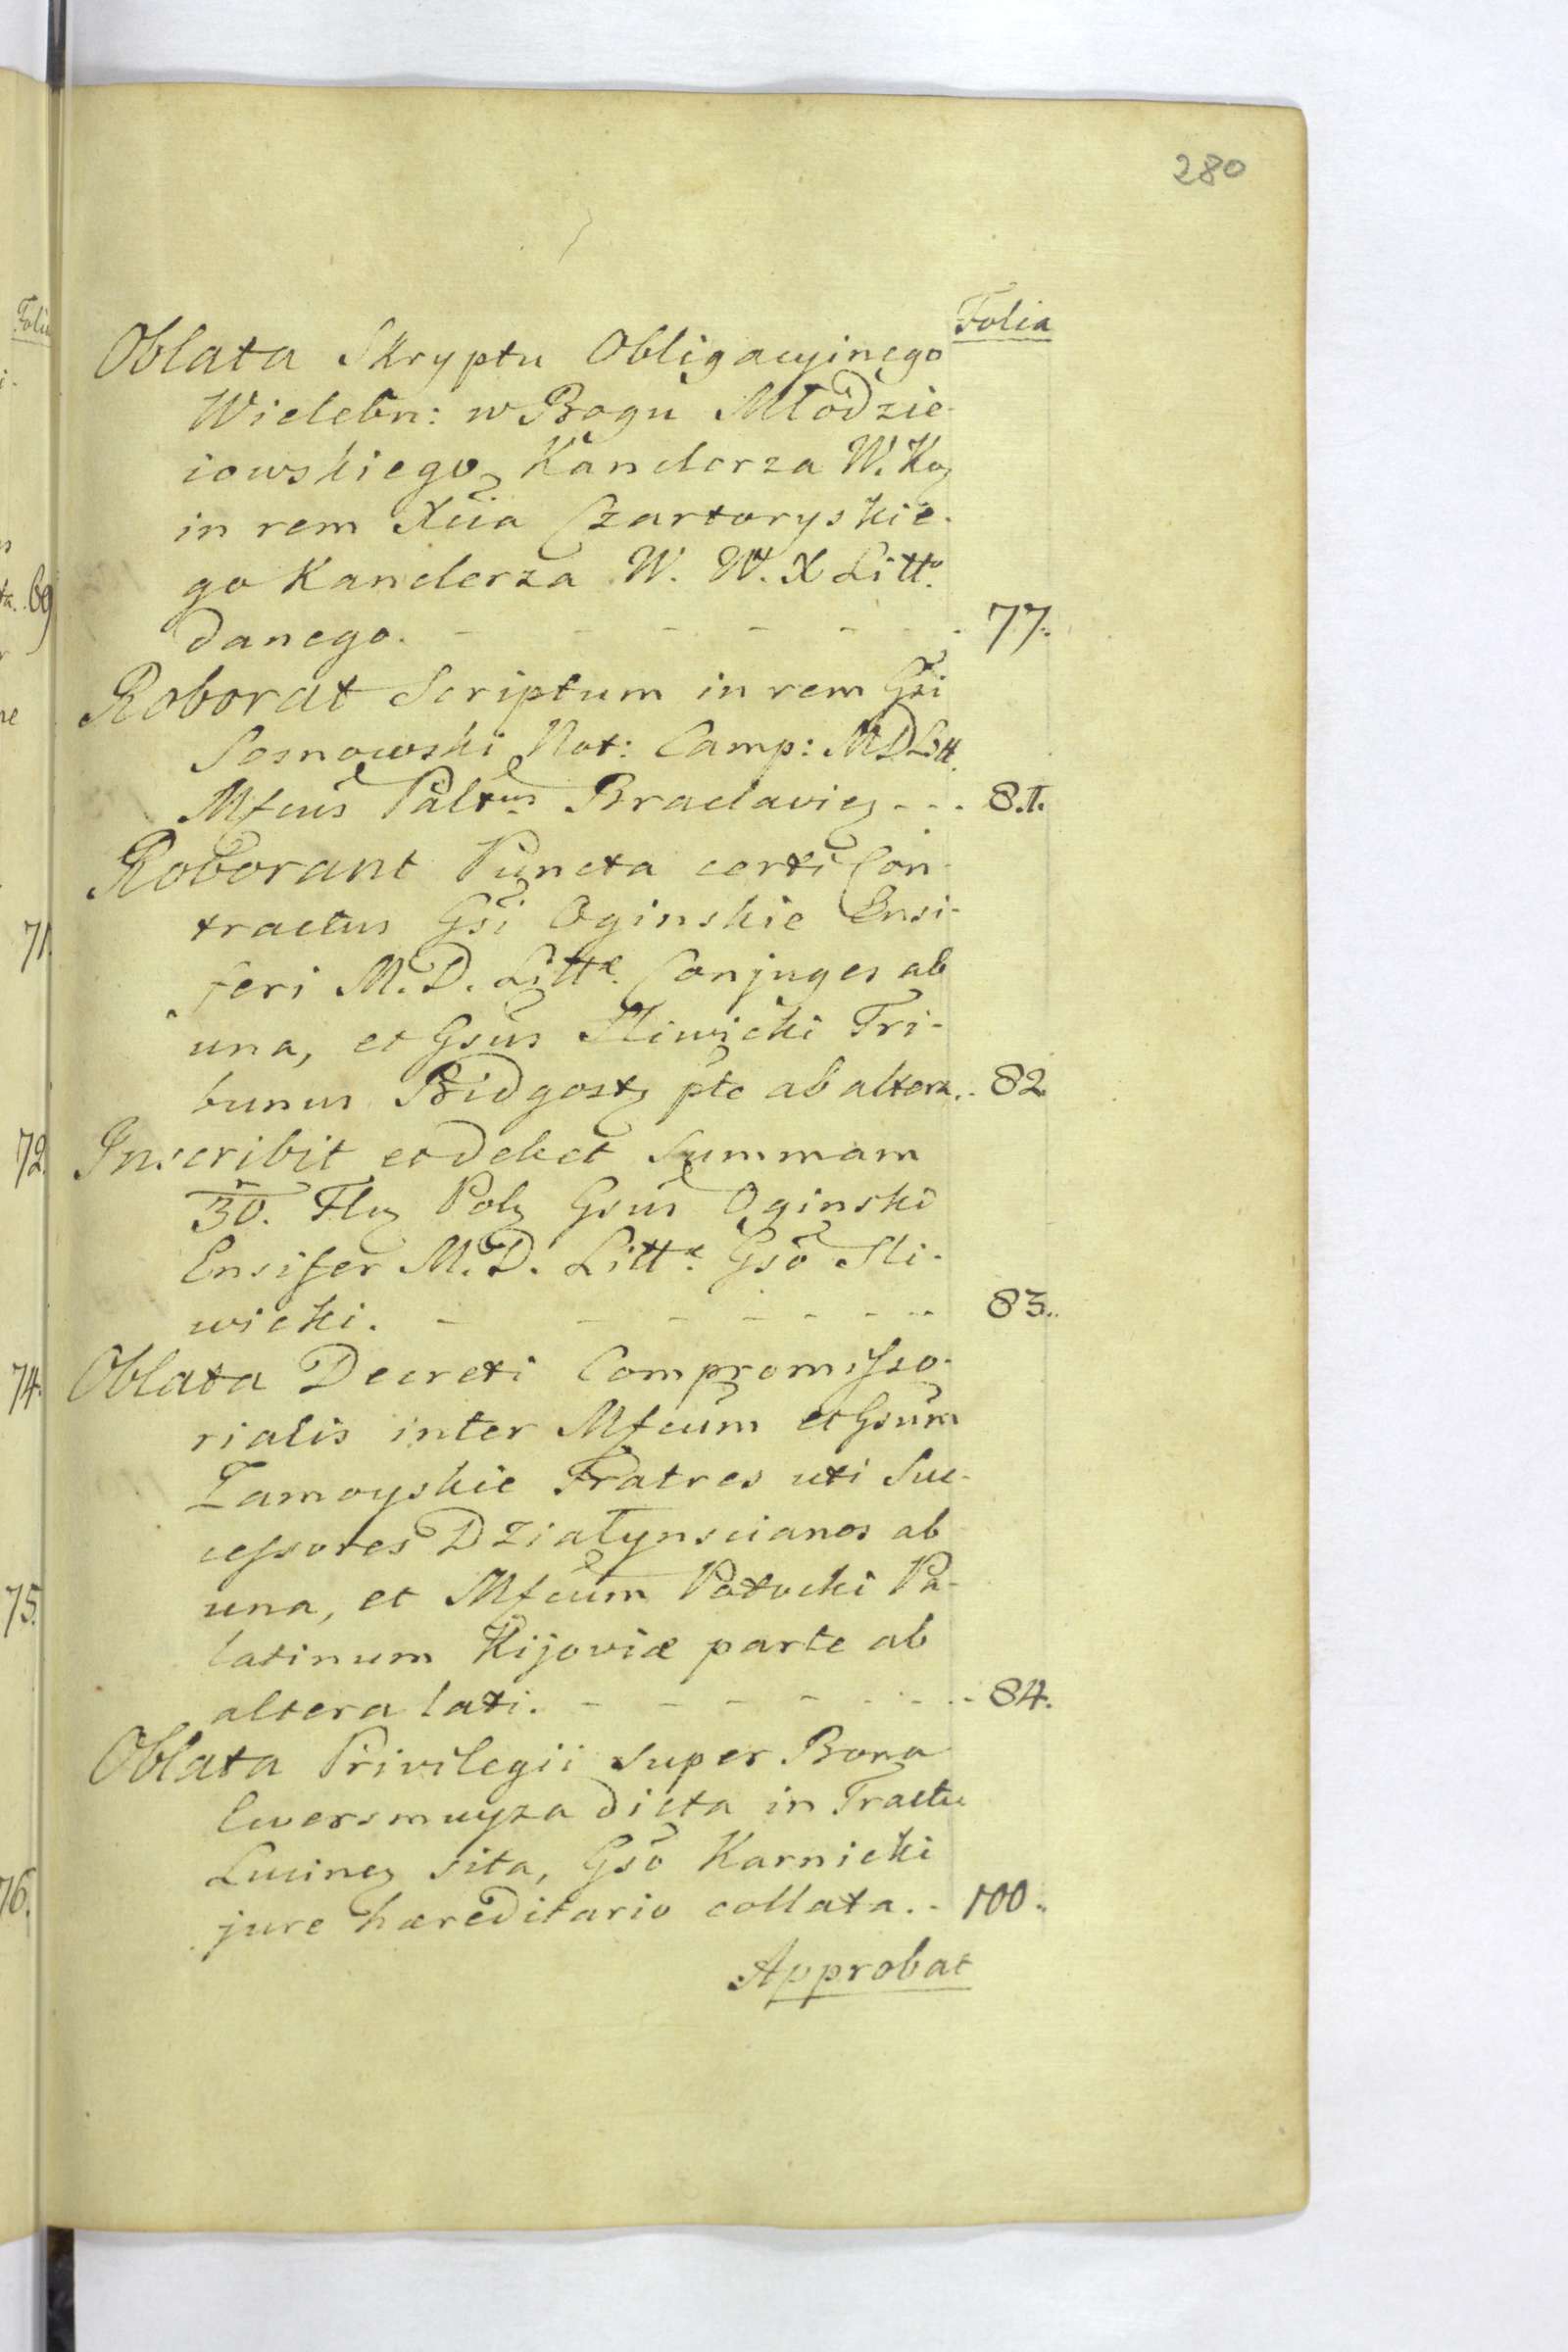 280
Folia
Oblata Skryptu Obligacyinego
Wielebn: w Bogu Młodzie-
iowskiego Kanclerza W. Ko
in rem Xcia Czartoryskie-
go Kanclerza W. W. X Litto
danego. - - - - - - 77.
Roborat Scriptum in rem Gsi
Sosnowski Not: Camp: MDLitt.
Mfcus Paltnus Braclavien - - - 81.
Roborant Puncta certi Con-
tractus Gsi Oginskie Ensi-
feri M. D. Littæ Conjuges ab
una, et Gsus Sliwicki Tri-
bunus Bidgost pte ab altera. - 82
Inscribit et debet Summam
30. Fl Pol Gsus Oginski
Ensifer M. D. Littæ Gso Sli-
wicki. - - - - - - 83.
Oblata Decreti Compromisso-
rialis inter Mfcum et Gsum
Zamoyskie Fratres uti Suc-
cessores Działynscianos ab
una, et Mfcum Potocki Pa-
latinum Kijoviæ parte ab
altera lati. - - - - - - 84.
Oblata Privilegii super Bona
Ewersmuyza dicta in Tractu
Lucinen sita, Gso Karnicki
jure hæreditario collata. - 100.
Approbat
71.
72.
74.
75.
76.
69